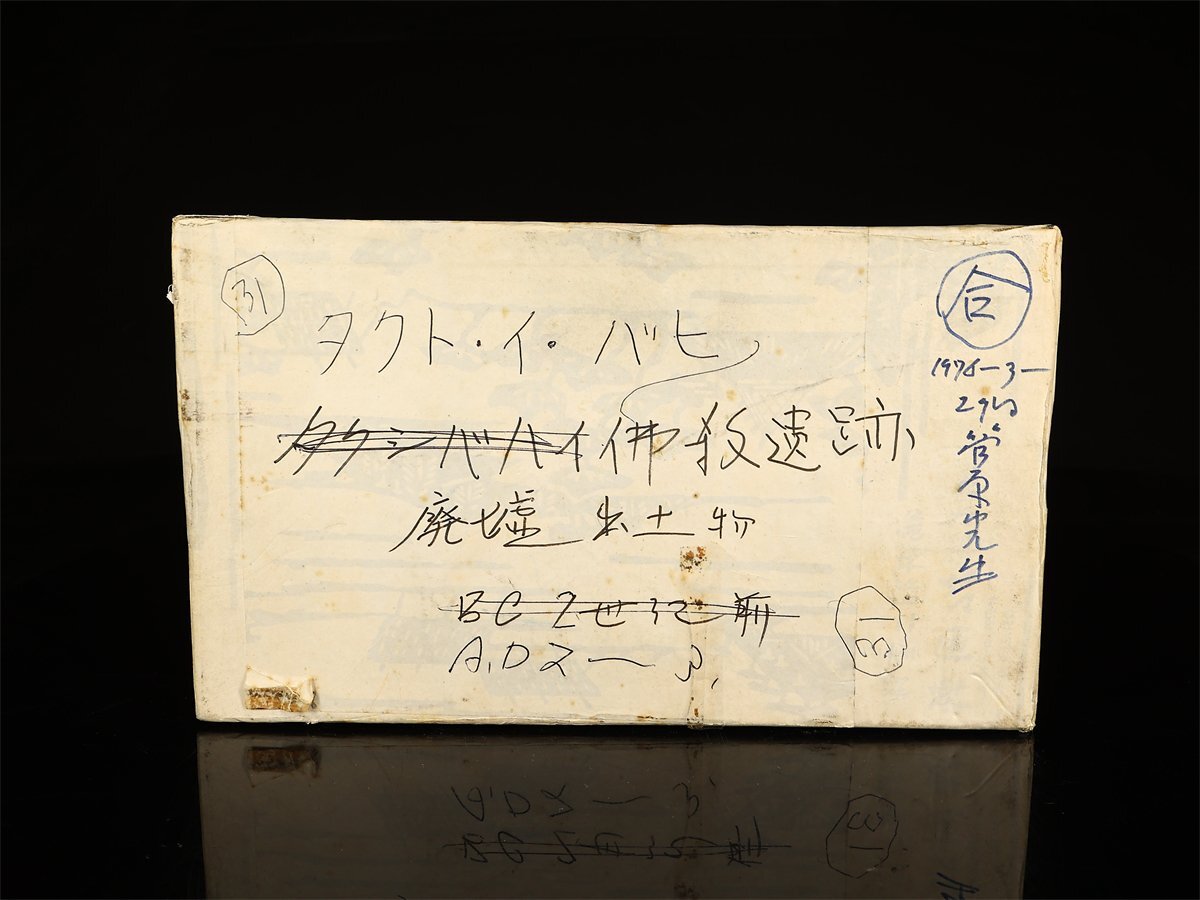 31
タクト・イ・バヒ
タクシバハイ佛殺遺跡
廃墟 出土物
BC 2世紀前
A.D 2〜3,
31
合
29日
菅原先生